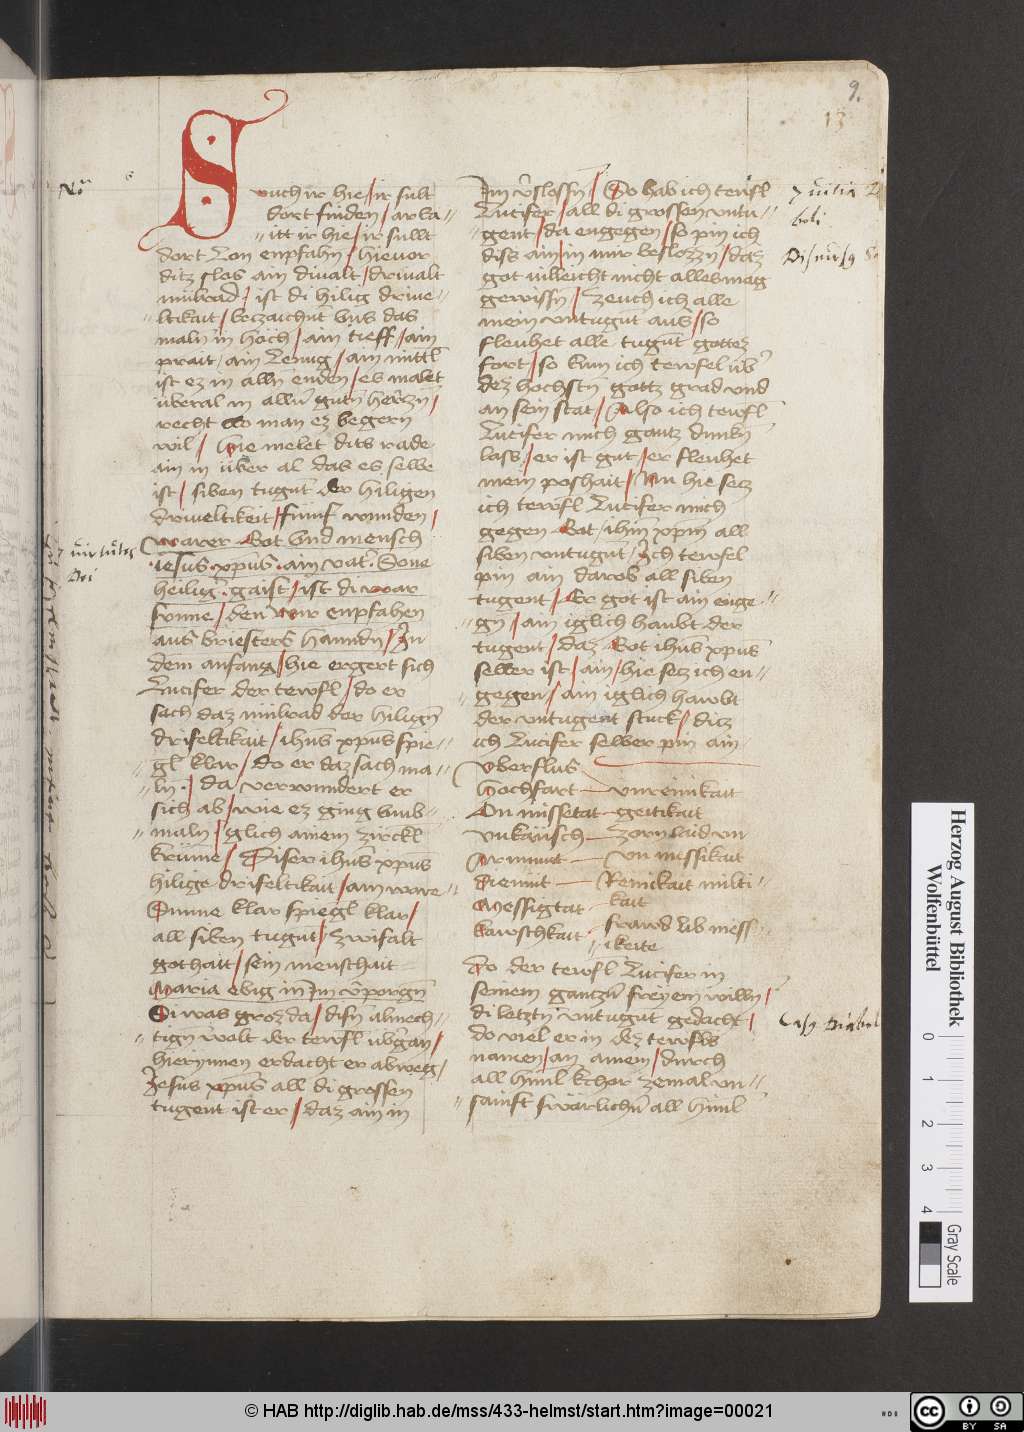 9.
13
Suuch ir hie / ir sult
dort finden / arba-
-itt ir hie / ir sullt
dort Lon enpfahn / hieuor
ditz slos ain diualt / driualt
mülrad / ist di hilig driue-
-ltikait / bezaichnt vns das
maln in hoch / ain tieff / ain
prait / ain Lenng / ain mittl
ist ez in alln enden / es malet
überal in alln gutn herczn /
recht wo man ez begern
wil / Hie melet dits rade
ain in über al das es selbe
ist / siben tugut der hiligen
driueltikeit / fünf wunden /
warer Got vnd mensch
iesus xpus ain vat' Sone
heilig' gaist / ist di war
sunne / den wir enpfahen
aus briesters hanndn / In
dem anfang / hie ergert sich
Lucifer der tewfl / do er
sach daz mülrad der hiligen
drifeltikait / ihus xpus spie-
-gl klar / do er daz sach ma-
-ln / da verwundert er
sich ab / wie ez ging vmb-
-maln / glich ainem zirckl
krume / Diser ihus xpus
hilige drifeltikait / ain ware-
Sunne klar spiegl klar /
all siben tugut / zwifalt
gothait / sein menschait
Maria ebig in Im v'porgn
Di was groz da / disn almech-
-tign wolt der tewfl vbergan /
hierynnen erdacht er abweg /
Jesus xpus all di grossen
tugent ist er / daz ain in
Im v'slossn / So hab ich teufl
Lucifer / all di grossen vntu-
-gent / da engegen / so pin ich
diss ain / in mir beslozzn / daz
got villeicht nicht alles mag
gewissn / zeuch ich alle
mein vntugut aus / so
fleuhet alle tugut gottez
fort / so kum ich tewfel vb'
dez hochstn gottz grad vnd
an sein stat / Also ich tewfl
Lucifer mich gantz dunkn
lass / er ist gut / er fleuhet
mein poshait / Nu hie secz
ich tewfl Lucifer mich
gegen Got / ihm xpm all
siben vntugut / Ich tewfel
pin ain darob all siben
tugent / Er got ist ain enge-
-gn / ain iglich haubt der
tugent / daz Got ihus xpus
selber ist / ain / hie secz ich en-
-gegen / ain iglich hawbt
der vntugent stuck / dicz
ich Lucifer selber pin ain
Vberflus
Hochfart — vnreinikait
On missetat — geitikait
vnkäusch — zorn laid vn
Armmut — vn missikait
Diemut — Reinikait milti-
Messigtat - kait
kawschkait - frawd lib mess-
-ikeite
Do der tewfl Lucifer in
seinem gantzn freyem willn /
di letztn vntugut gedacht /
do viel er in dez tewfls
namen / an ainem / durch
all himl kchor zemal vn-
-sanft swärlichn all himl
7 virtutes
Dei
7 vitia
boli
Herzog August Bibliothek
Wolfenbüttel
0 1 2 3 4
Gray Scale
© HAB http://diglib.hab.de/mss/433-helmst/start.htm?image=00021
HDB
cc BY SA